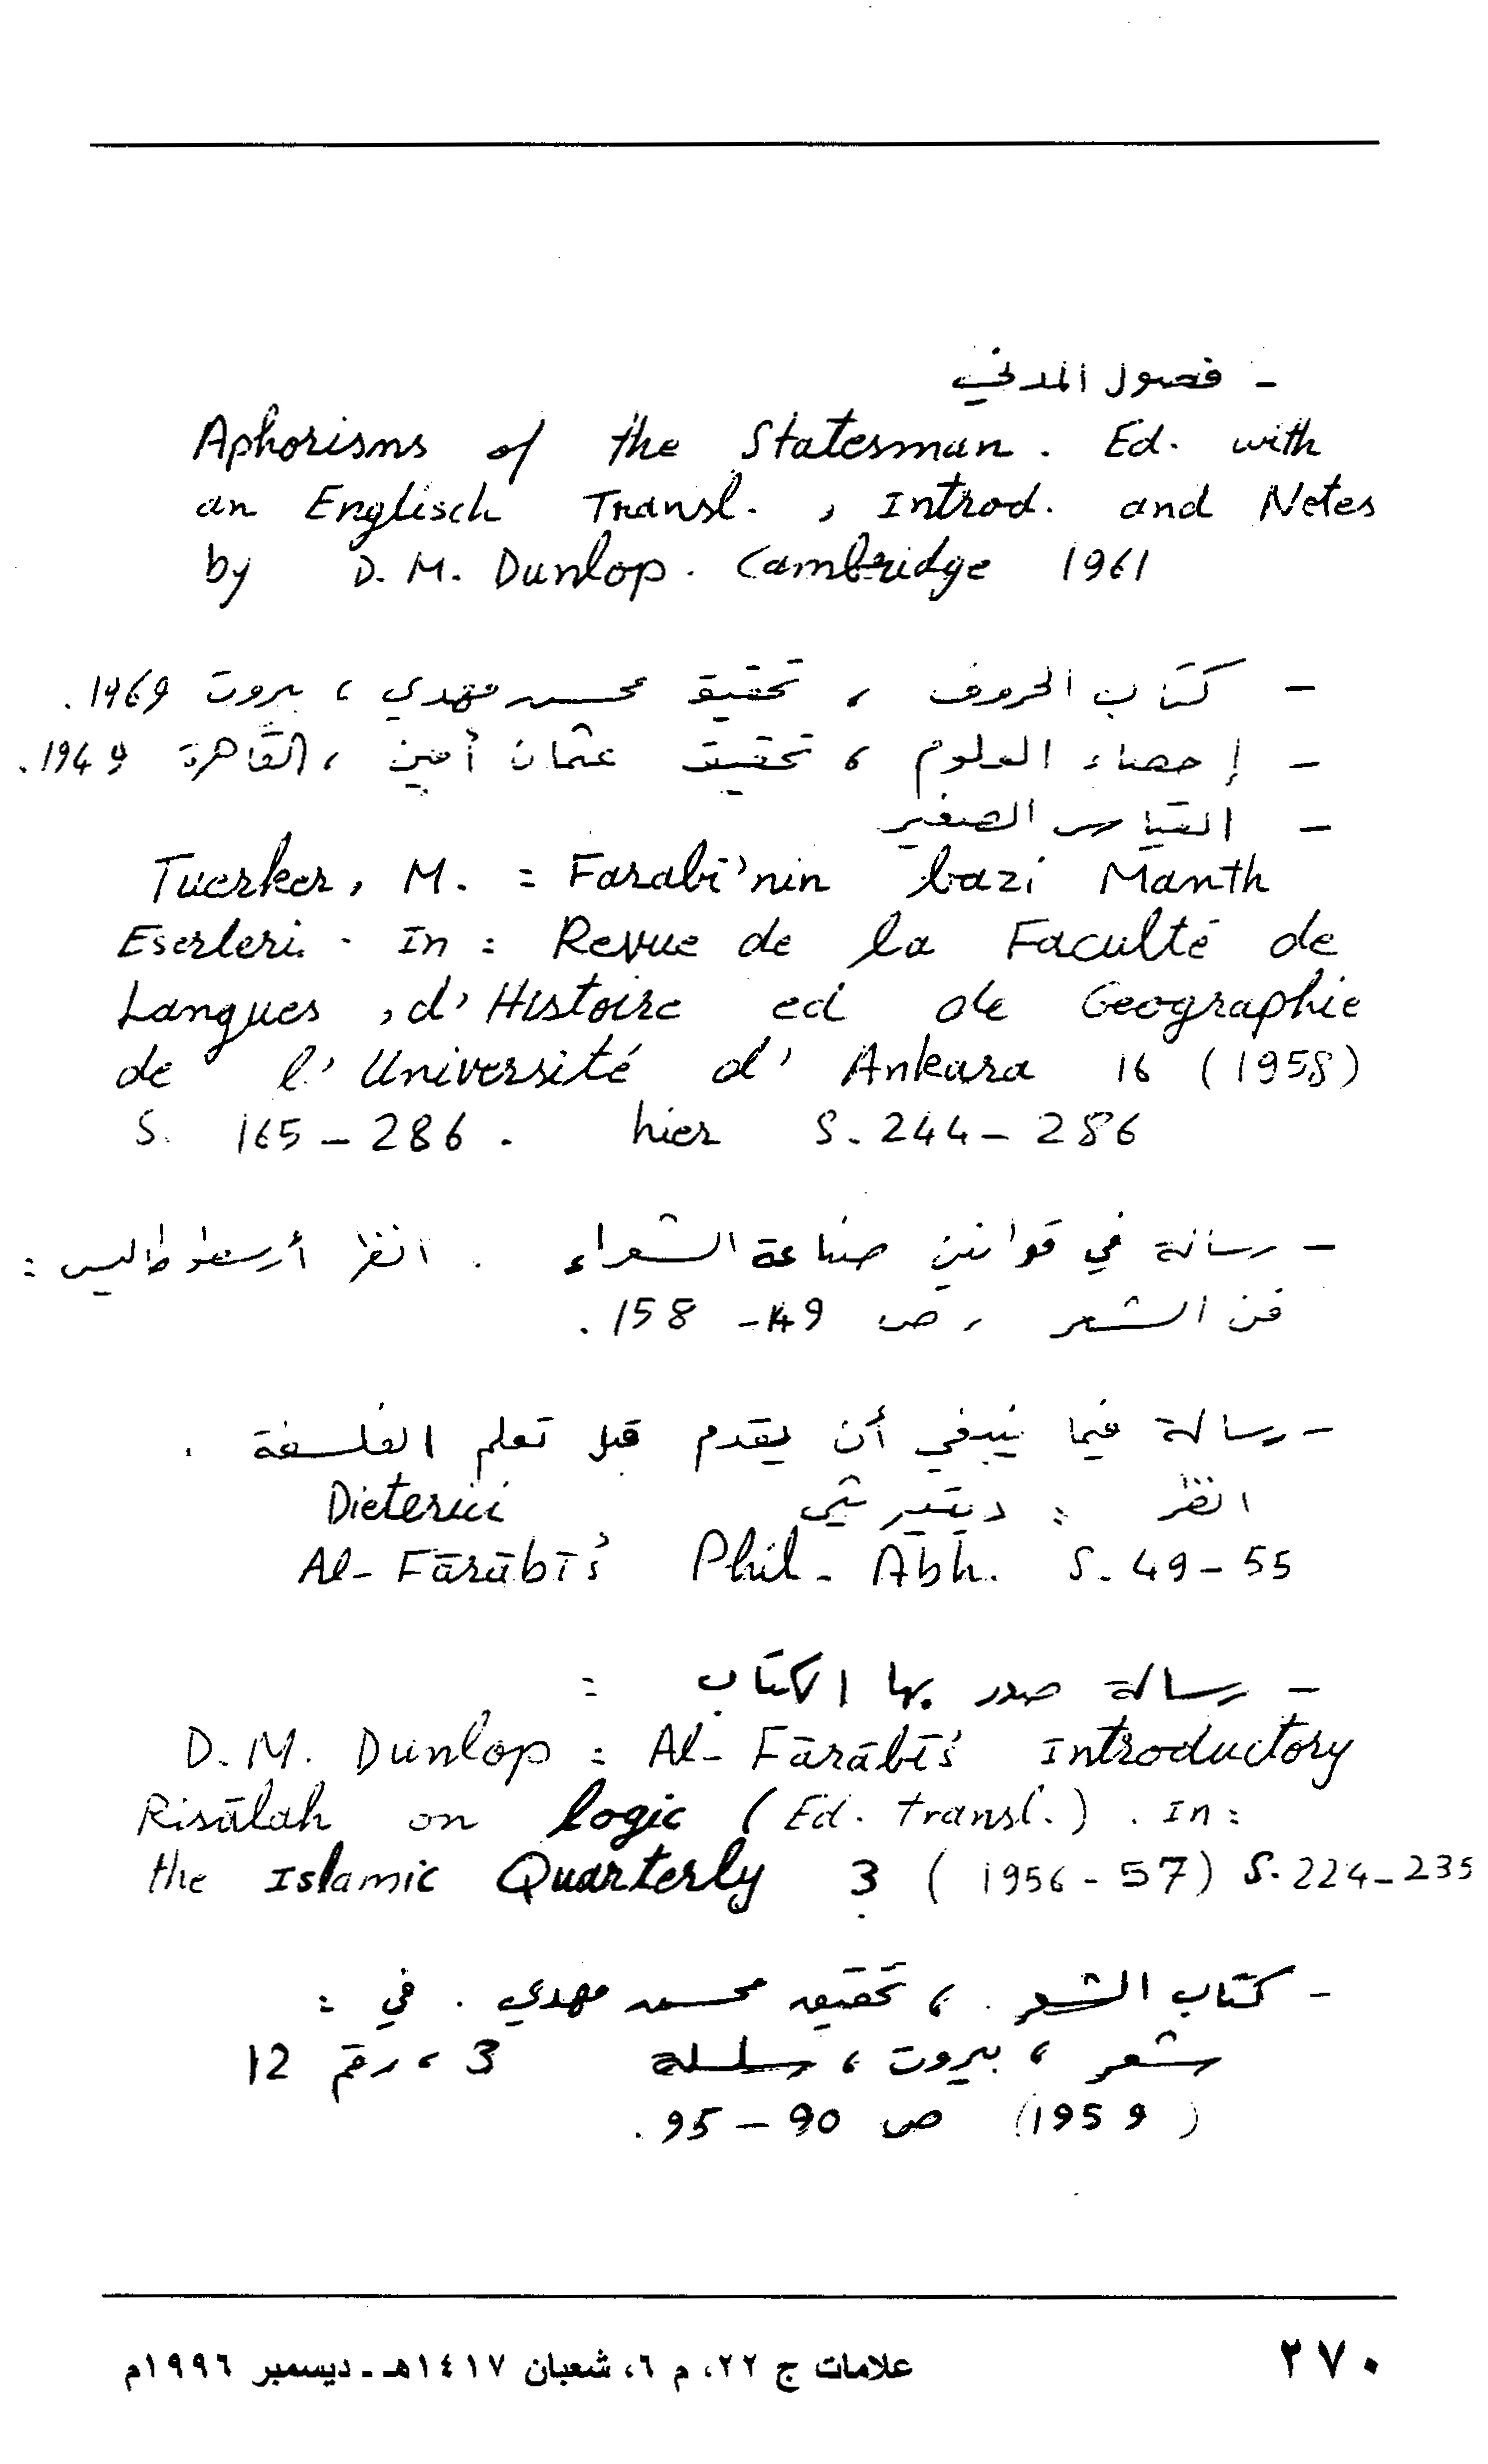 - فصول المدني
Aphorisms of the Statesman. Ed. with
an Englisch Transl., Introd. and Notes
by D. M. Dunlop. Cambridge 1961
- كتاب الحروف، تحقيق محسن مهدي، بيروت 1969.
- إحصاء العلوم، تحقيق عثمان أمين، القاهرة 1949.
- القياس الصغير
Tuerker, M. : Farabi'nin bazi Manth
Eserleri. In : Revue de la Faculté de
Langues, d'Histoire ed de Geographie
de l'Université d'Ankara 16 (1958)
S. 165-286. hier S. 244-286
- رسالة في قوانين صناعة الشعراء. انظر أرسطوطاليس:
فن الشعر، ص 149- 158.
- رسالة فيما ينبغي أن يقدم قبل تعلم الفلسفة.
انظر : ديتيرشي Dieterici
Al-Fārābī's Phil- Abh. S. 49-55
- رسالة صدر بها الكتاب :
D.M. Dunlop : Al-Fārābī's Introductory
Risālah on logic (Ed. transl.). In:
the Islamic Quarterly 3 (1956-57) S. 224-235
- كتاب الشعر.، تحقيق محسن مهدي. في :
شعر، بيروت، سلسلة 3، رقم 12
(1959) ص 90-95.
٢٧٠
علامات ج ٢٢، م ٦، شعبان ١٤١٧هـ - ديسمبر ١٩٩٦م